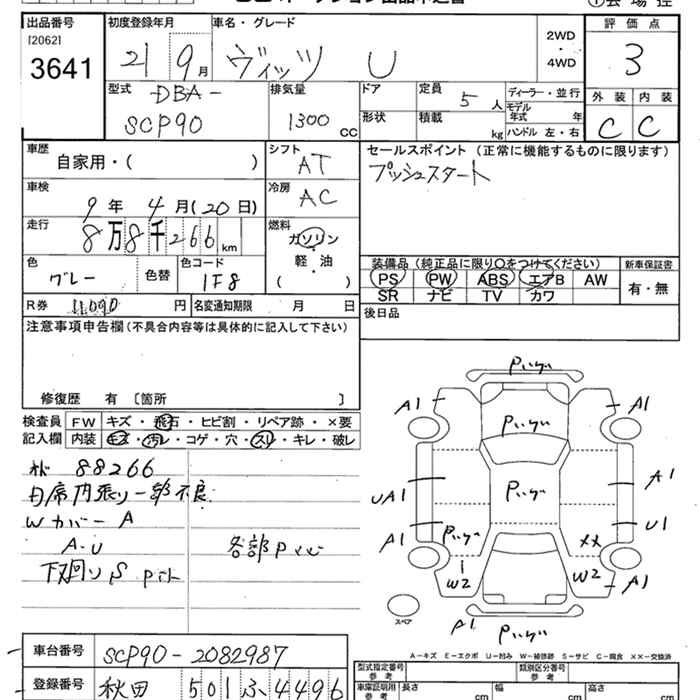 出品番号
[2062]
3641
初度登録年月
21 9月
車名・グレード
ヴィッツ U
2WD
・
4WD
評価点
3
型式
DBA-
SCP90
排気量
1300 CC
ドア
形状
定員
5人
積載
kg
ディーラー・並行
モデル年式 年
ハンドル 左・右
外装 内装
C C
車歴
自家用・( )
シフト
AT
セールスポイント (正常に機能するものに限ります)
プッシュスタート
車検
9年 4月(20日)
冷房
AC
走行
8万8千266km
燃料
ガソリン
軽・油
( )
色
グレー
色替
色コード
1F8
装備品 (純正品に限り○をつけてください)
PS PW ABS エアB AW
SR ナビ TV カワ
新車保証書
有・無
R券 11,090円
名変通知期限 月 日
後日品
注意事項申告欄(不具合内容等は具体的に記入して下さい)
修復歴 有 〔箇所 〕
検査員記入欄
FW キズ・飛石・ヒビ割・リペア跡・×要
内装 キズ・汚レ・コゲ・穴・スリ・キレ・破レ
88266
内張り一部不良
Wカバー A
A・U
各部
下回りS
A1
A1
UA1
A1
U1
A1
××
W2
W2
A1
A1
スペア
A-キズ E-エクボ U-凹み W-補修跡 S-サビ C-腐食 ××-交換済
車台番号
SCP90-2082987
登録番号
秋田 501 ふ 4496
型式指定番号
参考
類別区分番号
参考
車庫証明用
参考
長さ cm
幅 cm
高さ cm